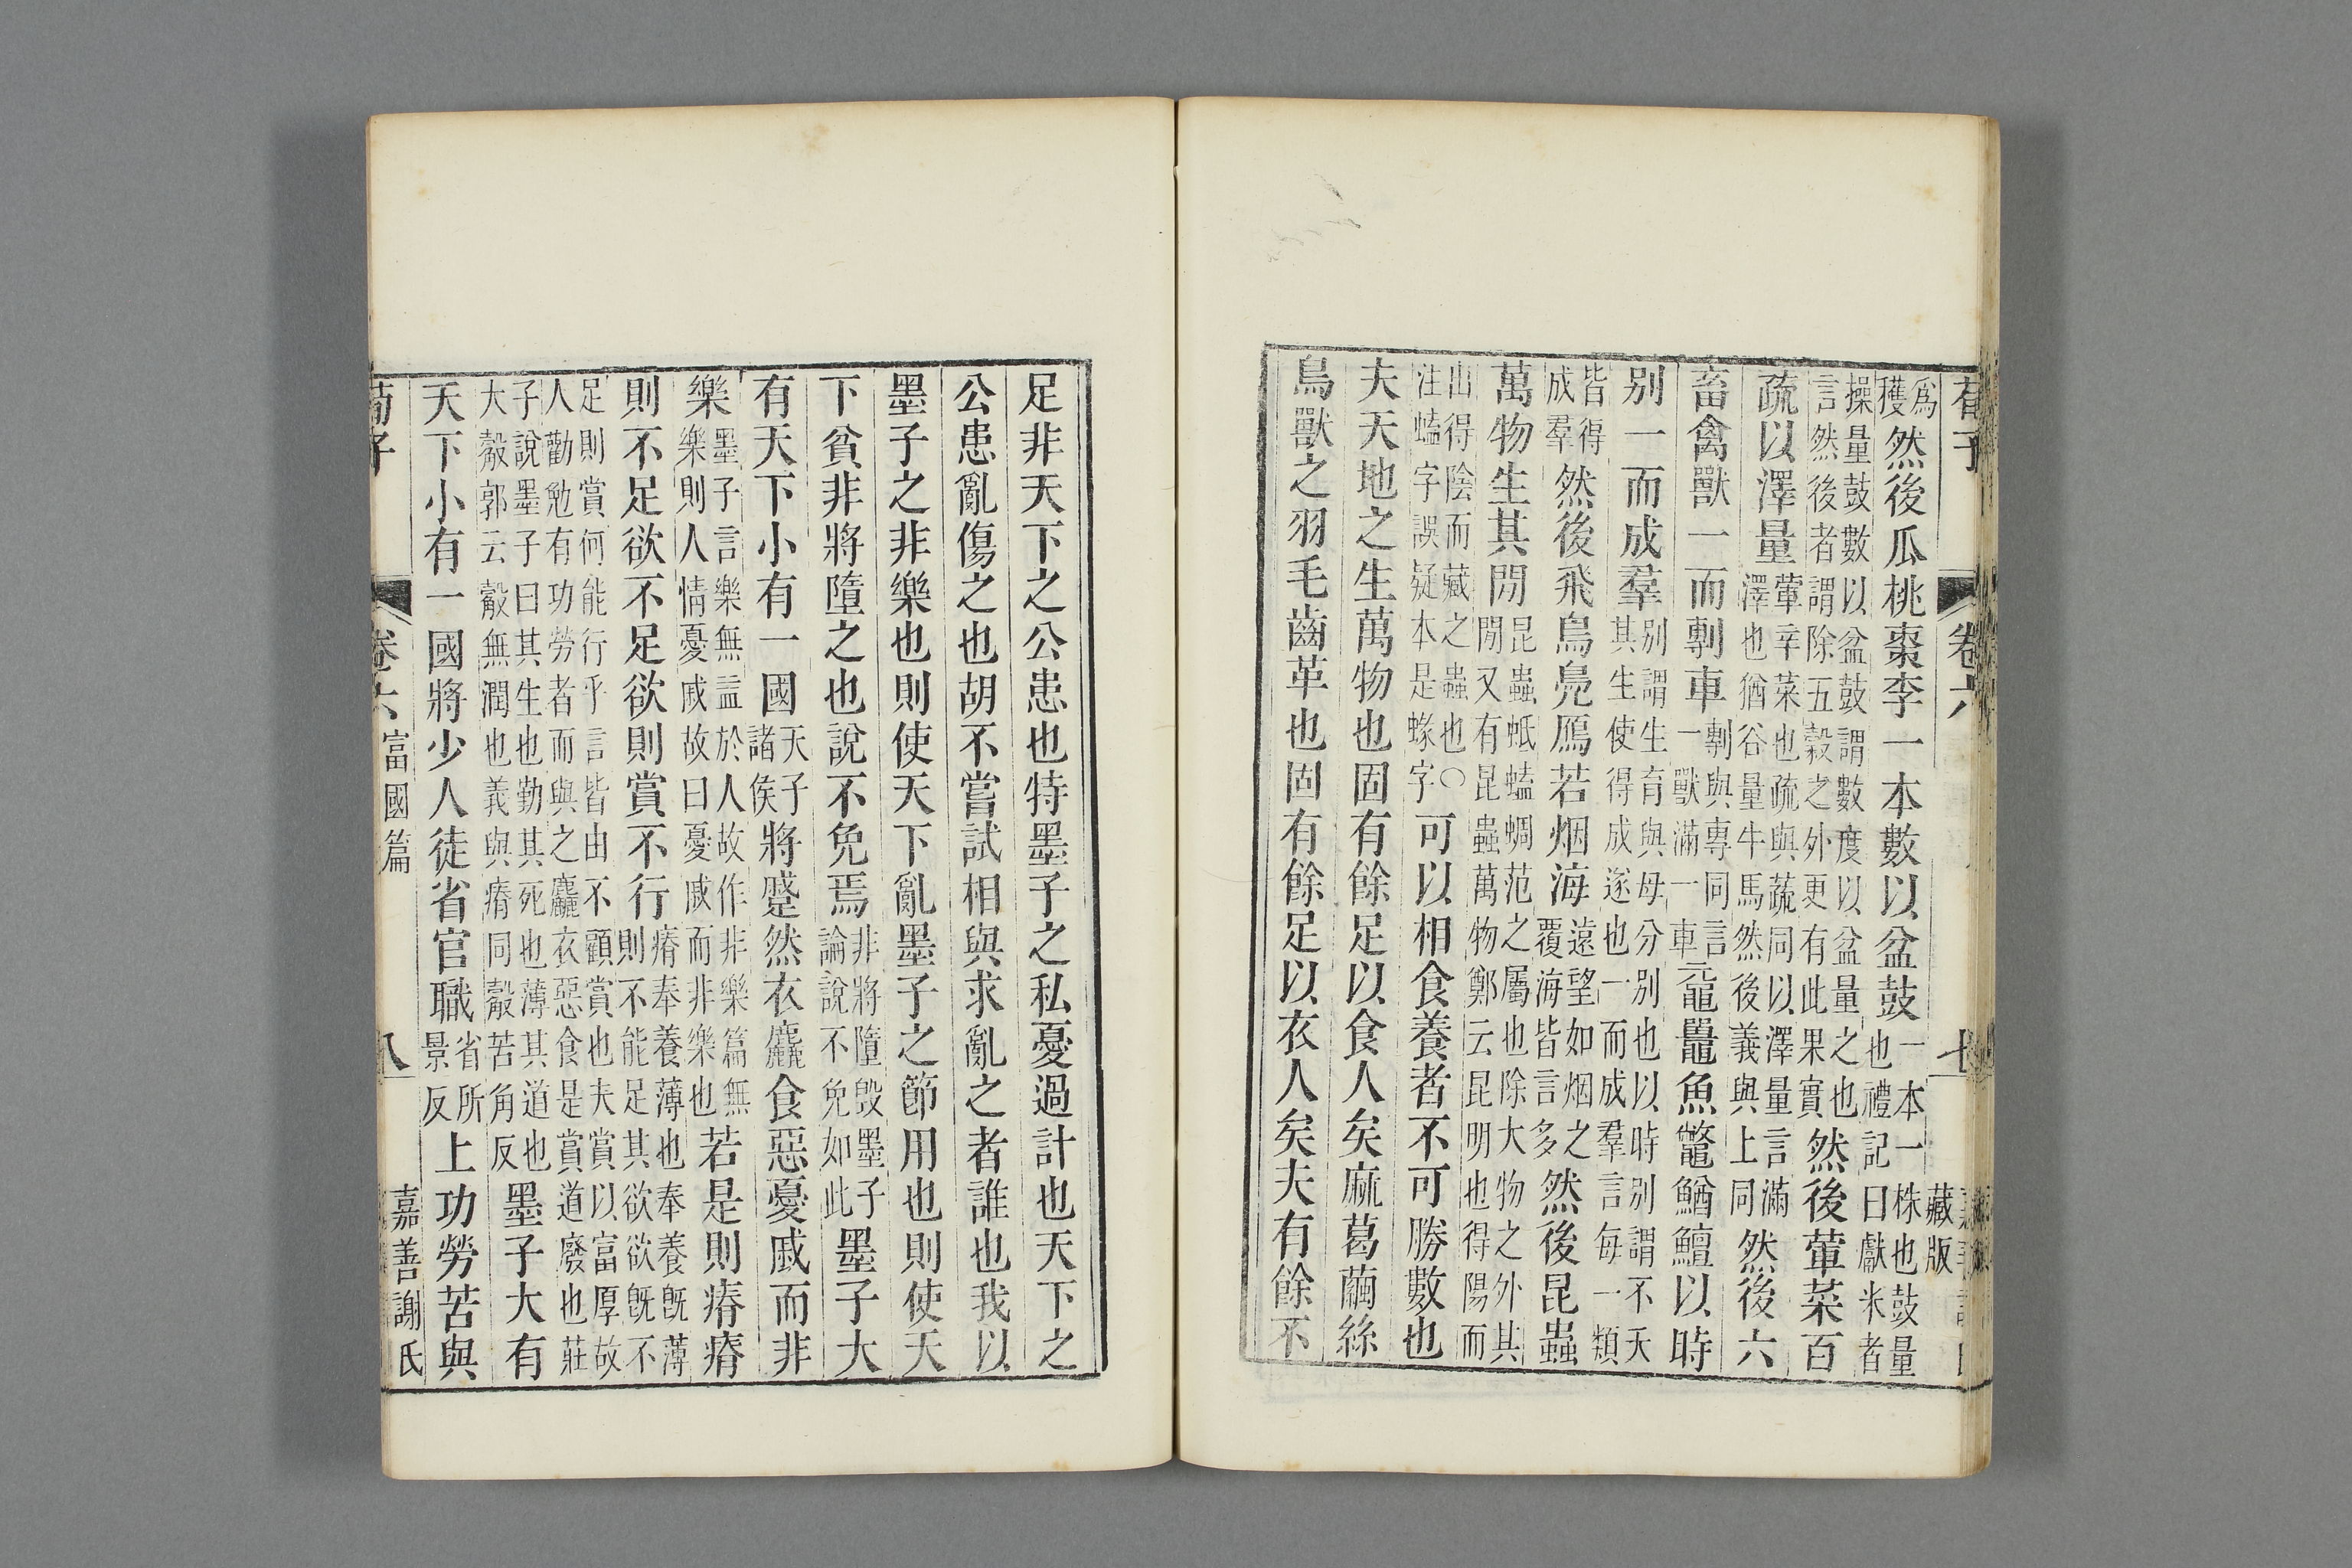 荀子 卷六 七 藏版
爲穫然後瓜桃棗李一本數以盆鼓一本一株也鼓量也禮記曰獻米者
操量鼓數以盆鼓謂數度以盆量之也言然後者謂除五穀之外更有此果實然後葷菜百
疏以澤量葷辛菜也疏與蔬同以澤量言滿澤也猶谷量牛馬然後義與上同然後六
畜禽獸一而剸車剸與專同言一獸滿一車黿鼉魚鼈鰌鱣以時
別一而成羣別謂生育與母分別也以時別謂不夭其生使得成遂也一而成羣言每一類
皆得成羣然後飛鳥鳧鴈若烟海遠望如烟之覆海皆言多然後昆蟲
萬物生其閒昆蟲蚳螘蜩范之屬也除大物之外其閒又有昆蟲萬物鄭云昆明也得陽而
出得陰而藏之蟲也〇注螘字誤疑本是蝝字可以相食養者不可勝數也
夫天地之生萬物也固有餘足以食人矣麻葛繭絲
鳥獸之羽毛齒革也固有餘足以衣人矣夫有餘不
足非天下之公患也特墨子之私憂過計也天下之
公患亂傷之也胡不嘗試相與求亂之者誰也我以
墨子之非樂也則使天下亂墨子之節用也則使天
下貧非將墮之也說不免焉非將墮毀墨子論說不免如此墨子大
有天下小有一國天子諸侯將蹙然衣麤食惡憂戚而非
樂墨子言樂無益於人故作非樂篇無樂則人情憂戚故曰憂戚而非樂也若是則瘠瘠
則不足欲不足欲則賞不行瘠奉養薄也奉養旣薄則不能足其欲欲旣不
足則賞何能行乎言皆由不顧賞也夫賞以富厚故人勸勉有功勞者而與之麤衣惡食是賞道廢也莊
子說墨子曰其生也勤其死也薄其道也大觳郭云觳無潤也義與瘠同觳苦角反墨子大有
天下小有一國將少人徒省官職省所景反上功勞苦與
荀子 卷六 富國篇 八 嘉善謝氏